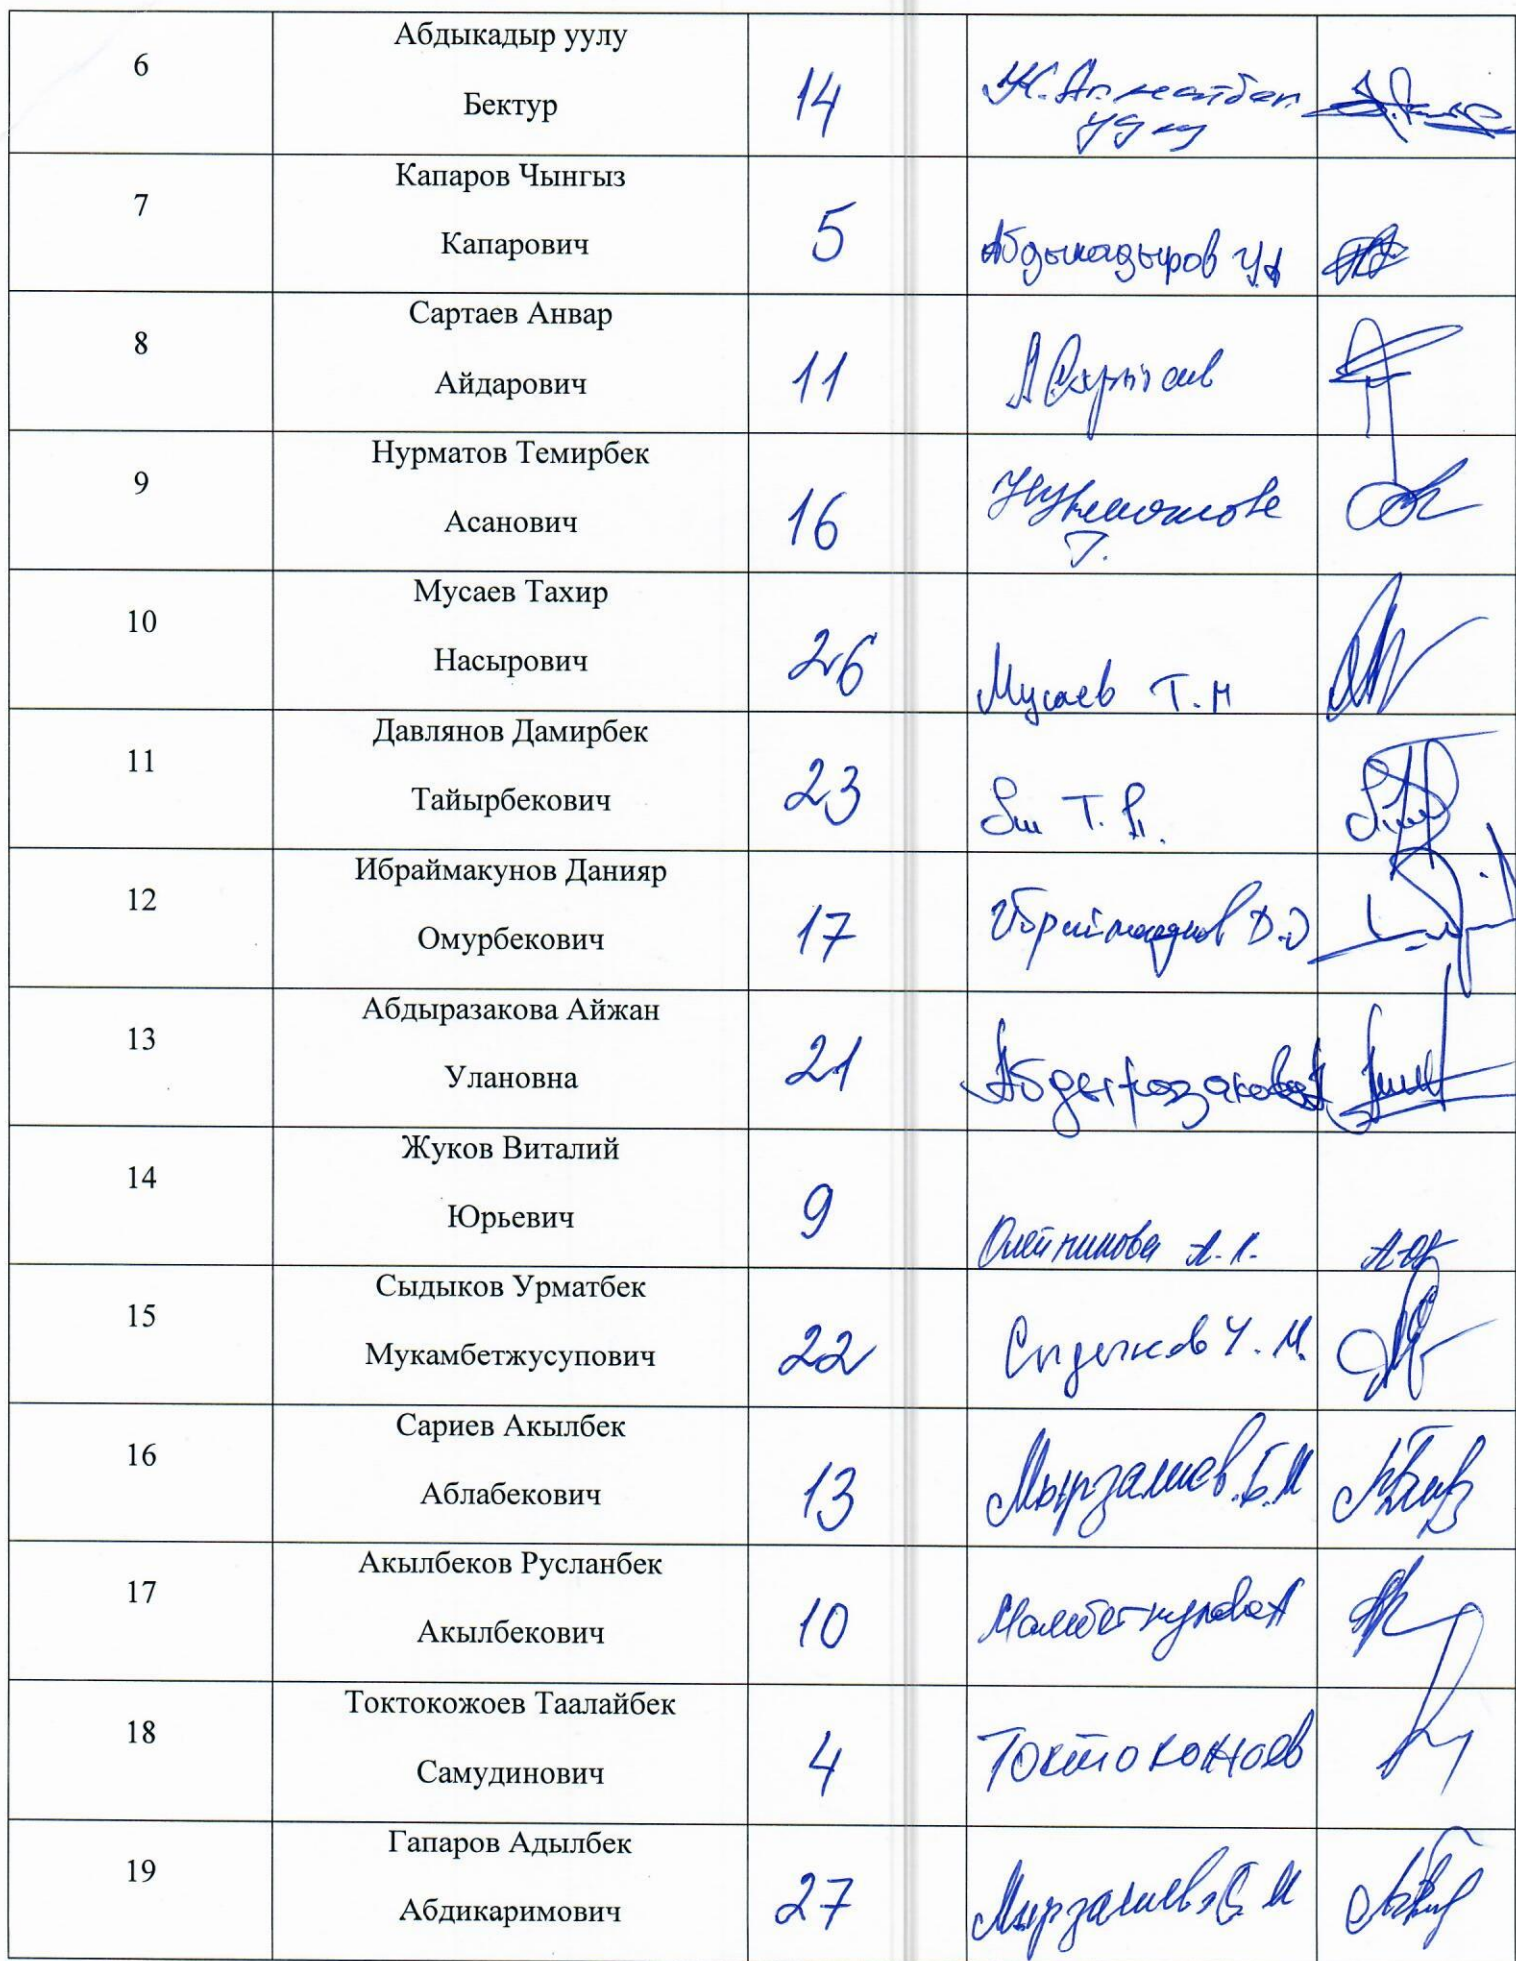 6
Абдыкадыр уулу
Бектур
14
7
Капаров Чынгыз
Капарович
5
Абдыкадыров У А
8
Сартаев Анвар
Айдарович
11
9
Нурматов Темирбек
Асанович
16
Т.
10
Мусаев Тахир
Насырович
26
Мусаев Т. Н
11
Давлянов Дамирбек
Тайырбекович
23
12
Ибраймакунов Данияр
Омурбекович
17
13
Абдыразакова Айжан
Улановна
21
Абдыразакова А
14
Жуков Виталий
Юрьевич
9
Олейникова
15
Сыдыков Урматбек
Мукамбетжусупович
22
Сыдыков У. М.
16
Сариев Акылбек
Аблабекович
13
Мырзалиев. Б. М
17
Акылбеков Русланбек
Акылбекович
10
Мамбеткулова А
18
Токтокожоев Таалайбек
Самудинович
4
Токтокожоев
19
Гапаров Адылбек
Абдикаримович
27